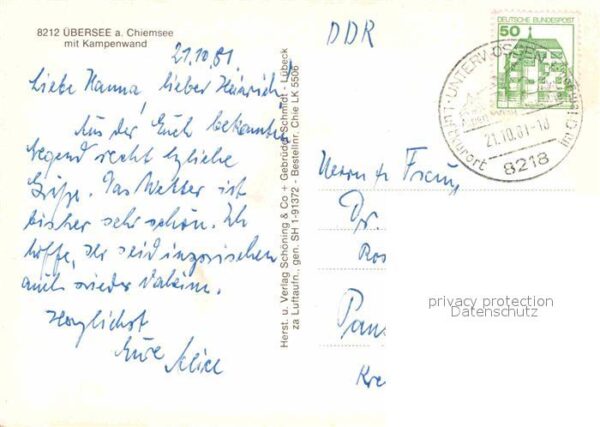 8212 ÜBERSEE a. Chiemsee
mit Kampenwand
21.10.81
Liebe Hanna, lieber Heinrich!
Aus der Euch bekannten
Gegend recht herzliche
Grüße. Das Wetter ist
bisher sehr schön. Ich
hoffe, Ihr seid inzwischen
auch wieder daheim.
Herzlichst
Eure
Herst. u. Verlag Schöning & Co + Gebrüder Schmidt - Lübeck
za Luftaufn., gen. SH 1-91372 - Bestellnr. Chie LK 5506
DDR
DEUTSCHE BUNDESPOST
50
UNTERWÖSSEN
Luftkurort
21.10.81-18
8218
Herrn u. Frau
Dr.
Ros
Pan
Kre
privacy protection
Datenschutz